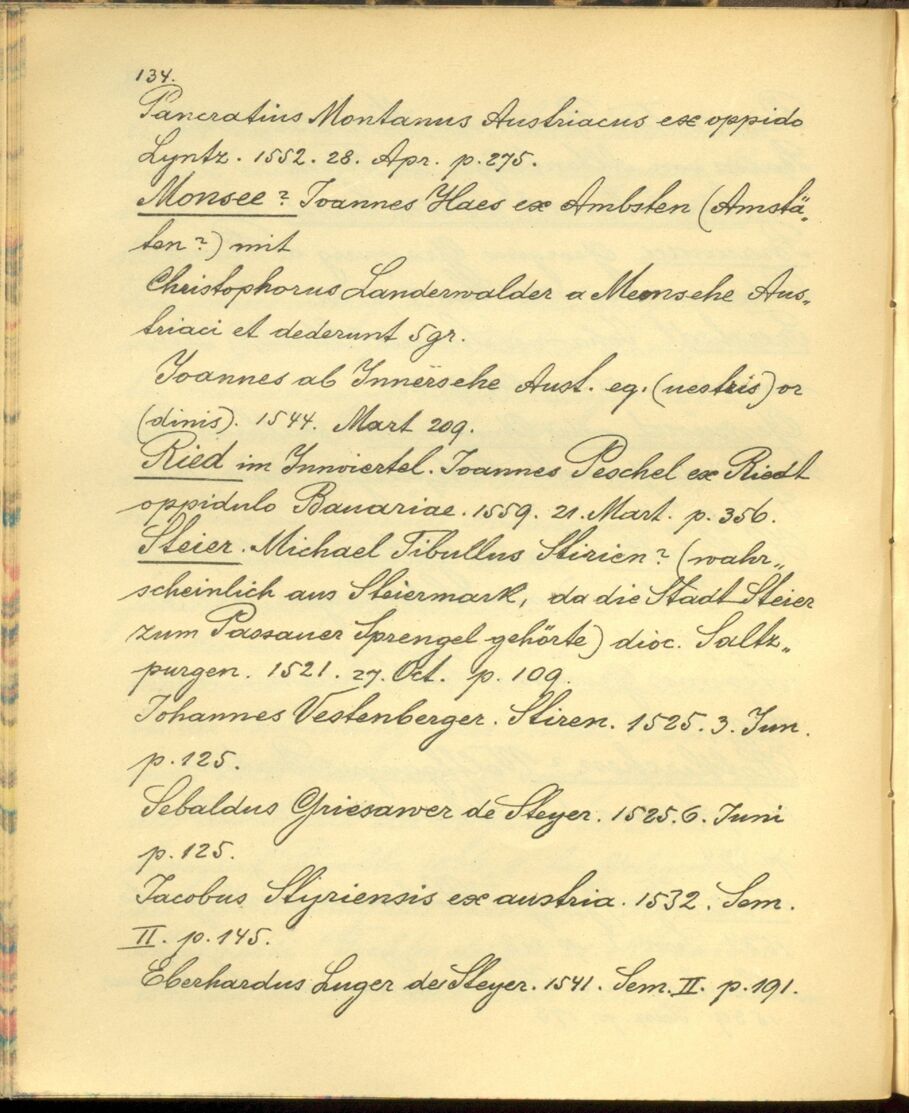 134.
Pancratius Montanus Austriacus ex oppido
Lyntz. 1552. 28. Apr. p. 275.
Monsee? Joannes Haes ex Ambsten (Amstä„
ten?) mit
Christophorus Landerwalder a Memsehe Aus„
triaci et dederunt 5 gr.
Joannes ab Innërsehe Aust. eq. (uestris) or
(dinis). 1544. Mart 209.
Ried im Innviertel. Joannes Peschel ex Riedt
oppidulo Bauariae. 1559. 21. Mart. p. 356.
Steier. Michael Tibullus Stirien? (wahr„
scheinlich aus Steiermark, da die Stadt Steier
zum Passauer Sprengel gehörte) dioc. Saltz„
purgen. 1521. 27. Oct. p. 109.
Johannes Vestenberger. Stiren. 1525. 3. Jun.
p. 125.
Sebaldus Griesawer de Steyer. 1525. 6. Juni
p. 125.
Jacobus Styriensis ex austria. 1532. Sem.
II. p. 145.
Eberhardus Luger de Steyer. 1541. Sem. II. p. 191.